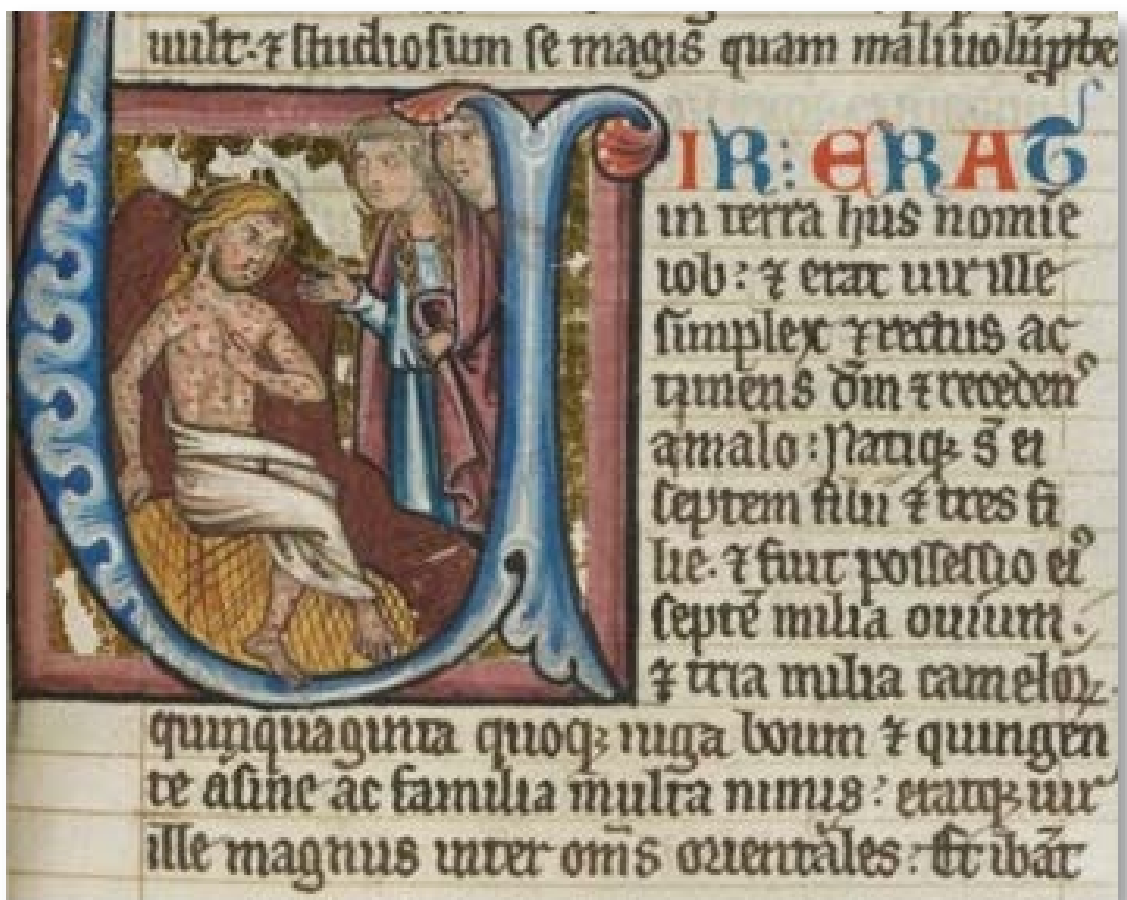 uult· ⁊ studiosum se magis quam maliuolum probe
VIR: ERAT
in terra hus nomīe
iob: ⁊ erat uir ille
simplex ⁊ rectus ac
timens dm̄ ⁊ receden⁹
a malo: Natiq; s̄ ei
septem filii ⁊ tres fi
lie· ⁊ fuit possessio ei⁹
septē milia ouium·
⁊ tria milia cameloꝝ·
quinquaginta quoq; iuga boum ⁊ quingen
te asine ac familia multa nimis: eratq; uir
ille magnus inter om̄s orientales: Et ibāt